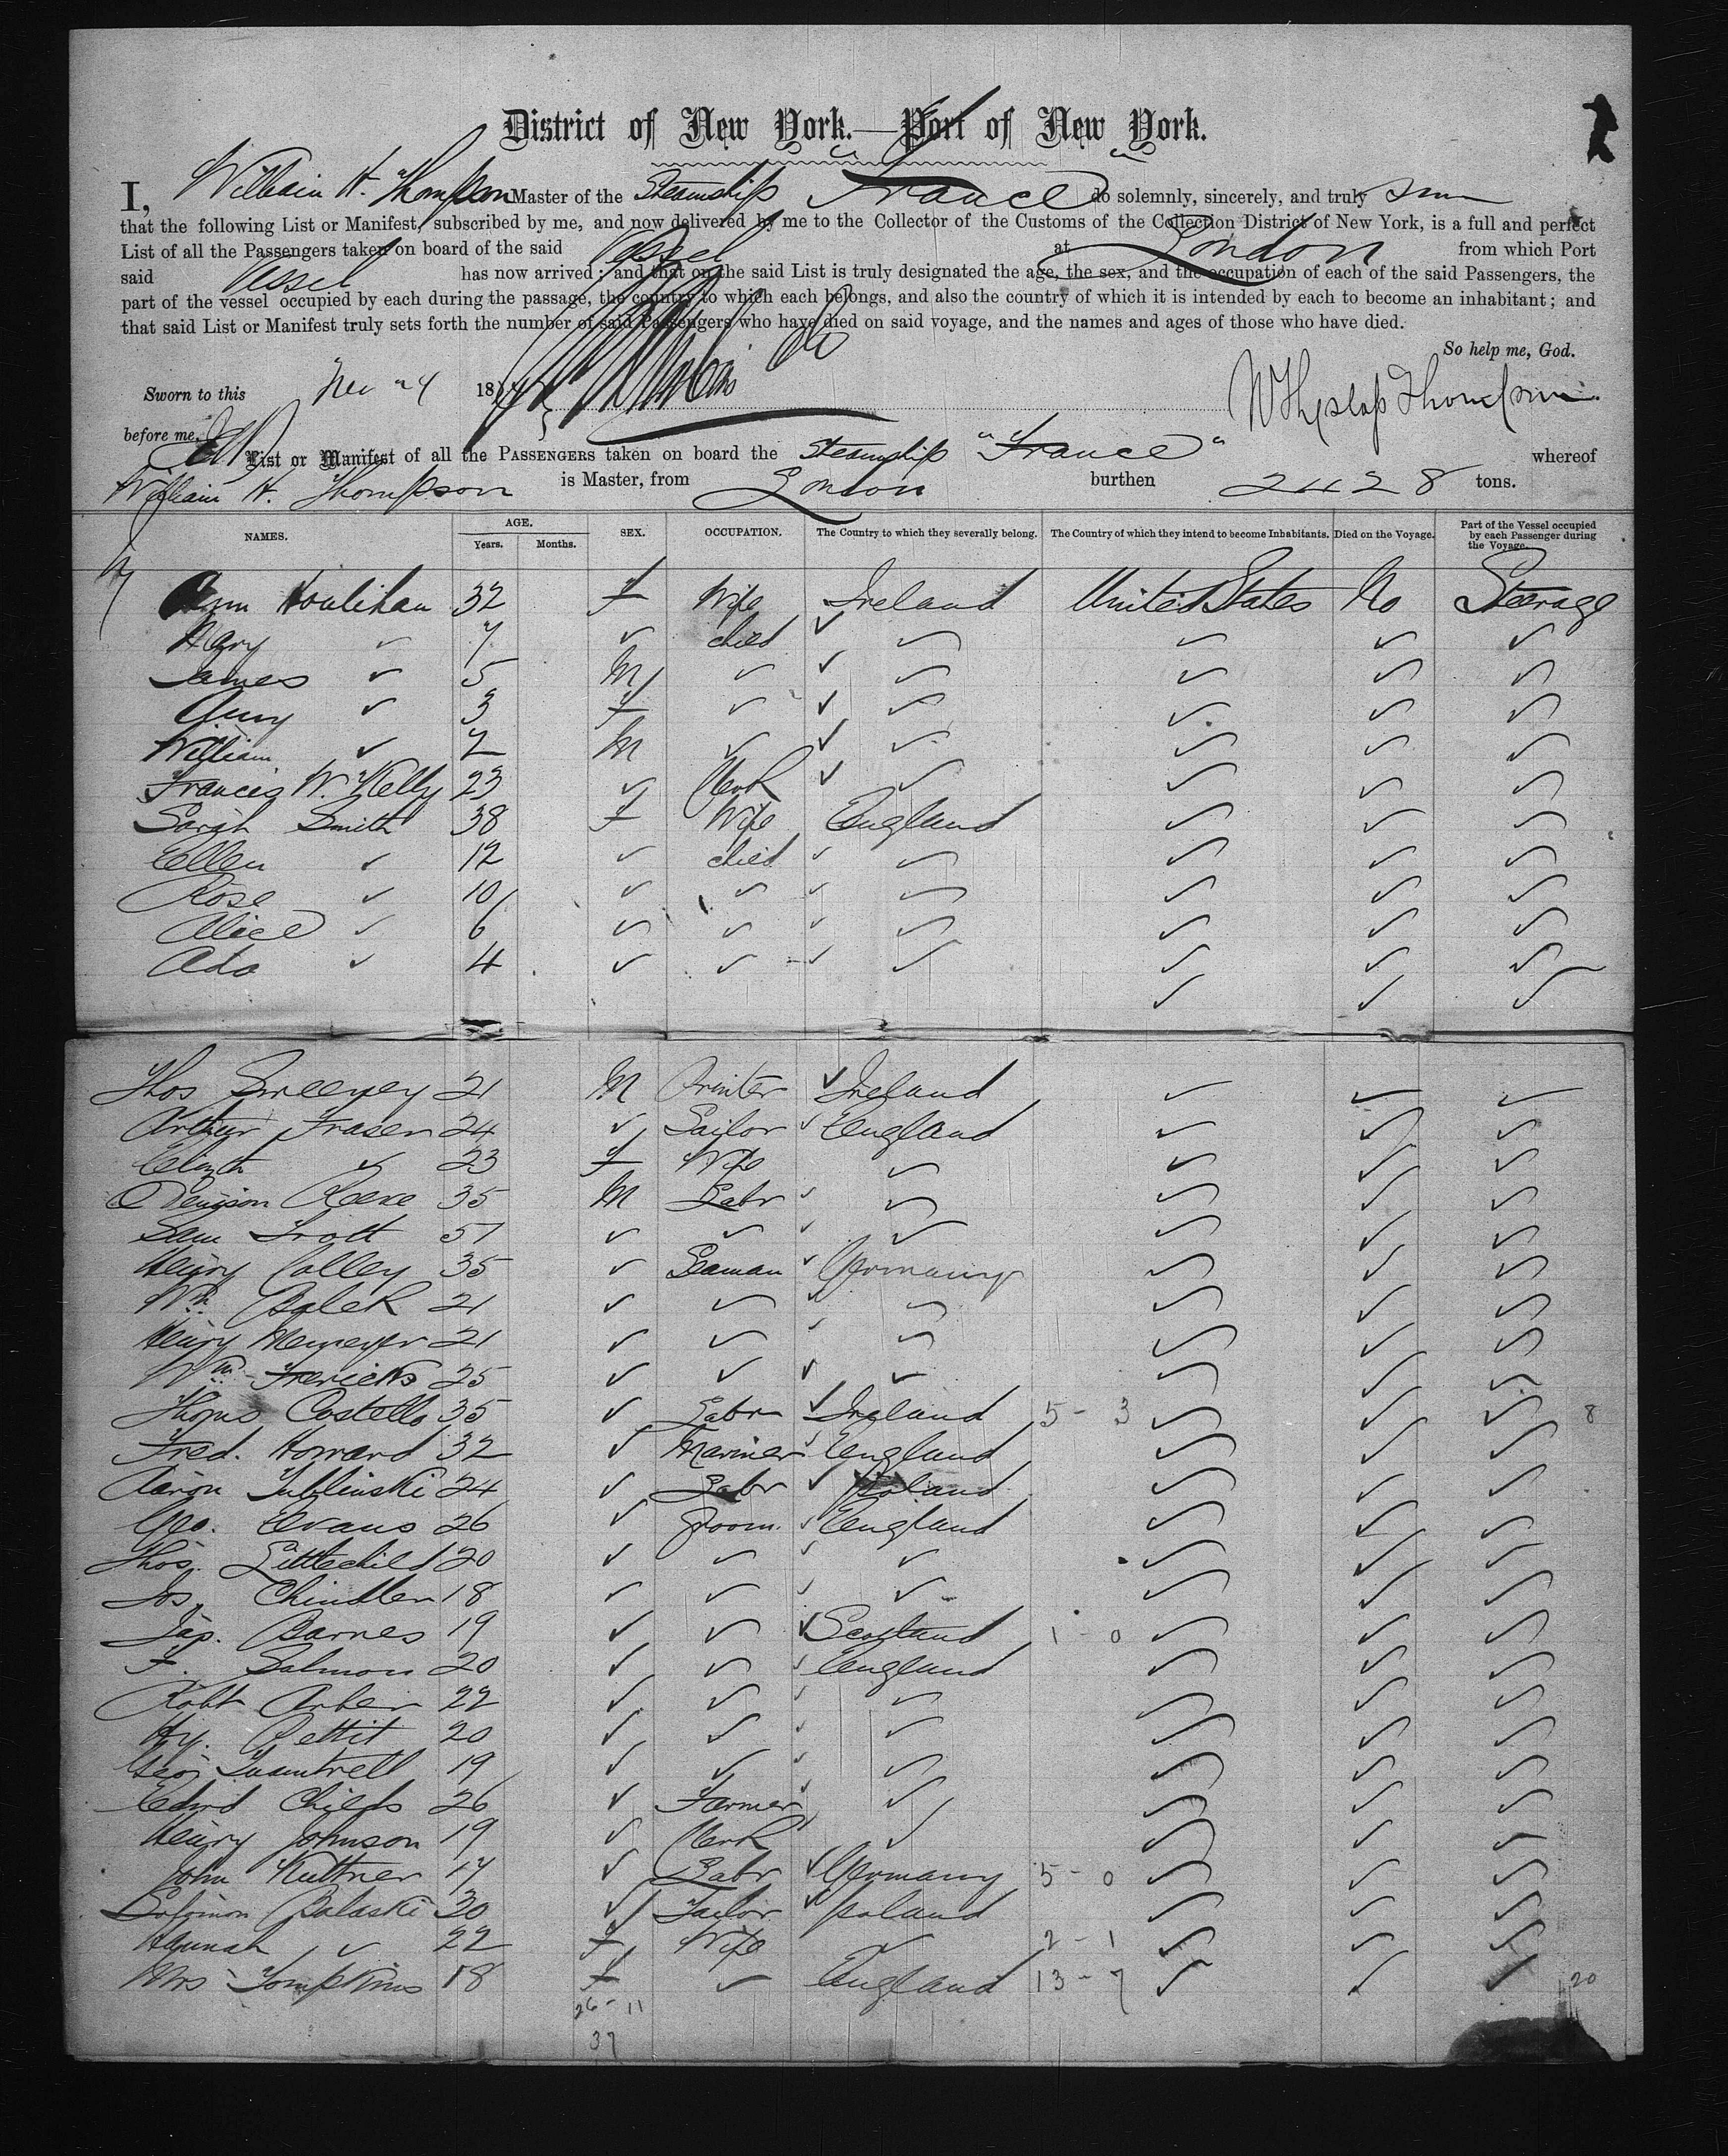 District of New York.—Port of New York.
I, William H. Thompson Master of the Steamship "France" do solemnly, sincerely, and truly
that the following List or Manifest, subscribed by me, and now delivered by me to the Collector of the Customs of the Collection District of New York, is a full and perfect
List of all the Passengers taken on board of the said Vessel at London from which Port
said Vessel has now arrived; and that on the said List is truly designated the age, the sex, and the occupation of each of the said Passengers, the
part of the vessel occupied by each during the passage, the country to which each belongs, and also the country of which it is intended by each to become an inhabitant; and
that said List or Manifest truly sets forth the number of said Passengers who have died on said voyage, and the names and ages of those who have died.
So help me, God.
Sworn to this 24 18
before me,
List or Manifest of all the PASSENGERS taken on board the Steamship "France" whereof
William H. Thompson is Master, from London burthen 2428 tons.
NAMES. AGE. Years. Months. SEX. OCCUPATION. The Country to which they severally belong. The Country of which they intend to become Inhabitants. Died on the Voyage. Part of the Vessel occupied by each Passenger during the Voyage.
Ann Houlihan 32 F Wife Ireland United States No Steerage
Mary ✓ 7 ✓ child ✓ ✓ ✓ ✓ ✓
James ✓ 5 M ✓ ✓ ✓ ✓ ✓ ✓
Amy ✓ 3 F ✓ ✓ ✓ ✓ ✓ ✓
William ✓ 2 M ✓ ✓ ✓ ✓ ✓ ✓
Francis W. Kelly 23 ✓ Clerk ✓ ✓ ✓ ✓ ✓
Sarah Smith 38 F Wife England ✓ ✓ ✓
Ellen ✓ 12 ✓ child ✓ ✓ ✓ ✓ ✓
Rose ✓ 10 ✓ ✓ ✓ ✓ ✓ ✓ ✓
Alice ✓ 6 ✓ ✓ ✓ ✓ ✓ ✓ ✓
Ada ✓ 4 ✓ ✓ ✓ ✓ ✓ ✓ ✓
✓ ✓ ✓
Thos Sweeney 21 M Printer ✓ Ireland ✓ ✓ ✓
Arthur Fraser 24 ✓ Sailor ✓ England ✓ ✓ ✓
Elizth ✓ 23 F Wife ✓ ✓ ✓ ✓
Denison Reeve 35 M Labr ✓ ✓ ✓ ✓ ✓
Sam Trott 51 ✓ ✓ ✓ ✓ ✓ ✓ ✓
Henry Colley 35 ✓ Seaman ✓ Germany ✓ ✓ ✓
Wm 21 ✓ ✓ ✓ ✓ ✓ ✓ ✓
Henry 21 ✓ ✓ ✓ ✓ ✓ ✓ ✓
Wm Frericks 25 ✓ ✓ ✓ ✓ ✓ ✓ ✓
Thoms Costello 35 ✓ Labr ✓ Ireland 5 - 3 ✓ ✓ ✓ 8
Fred. Howard 32 ✓ Mariner ✓ England ✓ ✓ ✓
Aaron Lublinski 24 ✓ Labr ✓ Poland ✓ ✓ ✓
Geo. Evans 26 ✓ Groom. ✓ England ✓ ✓ ✓
Thos. Littlechild 20 ✓ ✓ ✓ ✓ ✓ ✓ ✓
Jos. Chindler 18 ✓ ✓ ✓ ✓ ✓ ✓ ✓
Jas. Barnes 19 ✓ ✓ ✓ Scotland 1 - 0 ✓ ✓ ✓
F. Salmon 20 ✓ ✓ ✓ England ✓ ✓ ✓
Robt Arber 22 ✓ ✓ ✓ ✓ ✓ ✓ ✓
Hy. Pettit 20 ✓ ✓ ✓ ✓ ✓ ✓ ✓
Geo 19 ✓ ✓ ✓ ✓ ✓ ✓ ✓
Edwd Childs 26 ✓ Farmer ✓ ✓ ✓ ✓ ✓
Henry Johnson 19 ✓ Clerk ✓ ✓ ✓ ✓
John Kuttner 17 ✓ Labr ✓ Germany 5 - 0 ✓ ✓ ✓
Solomon Balaski 30 ✓ Tailor ✓ Poland ✓ ✓ ✓
Hannah ✓ 22 F Wife ✓ 2 - 1 ✓ ✓ ✓
Mrs Tompkins 18 F ✓ England 13 - 7 ✓ ✓ ✓ 20
26 - 11
37